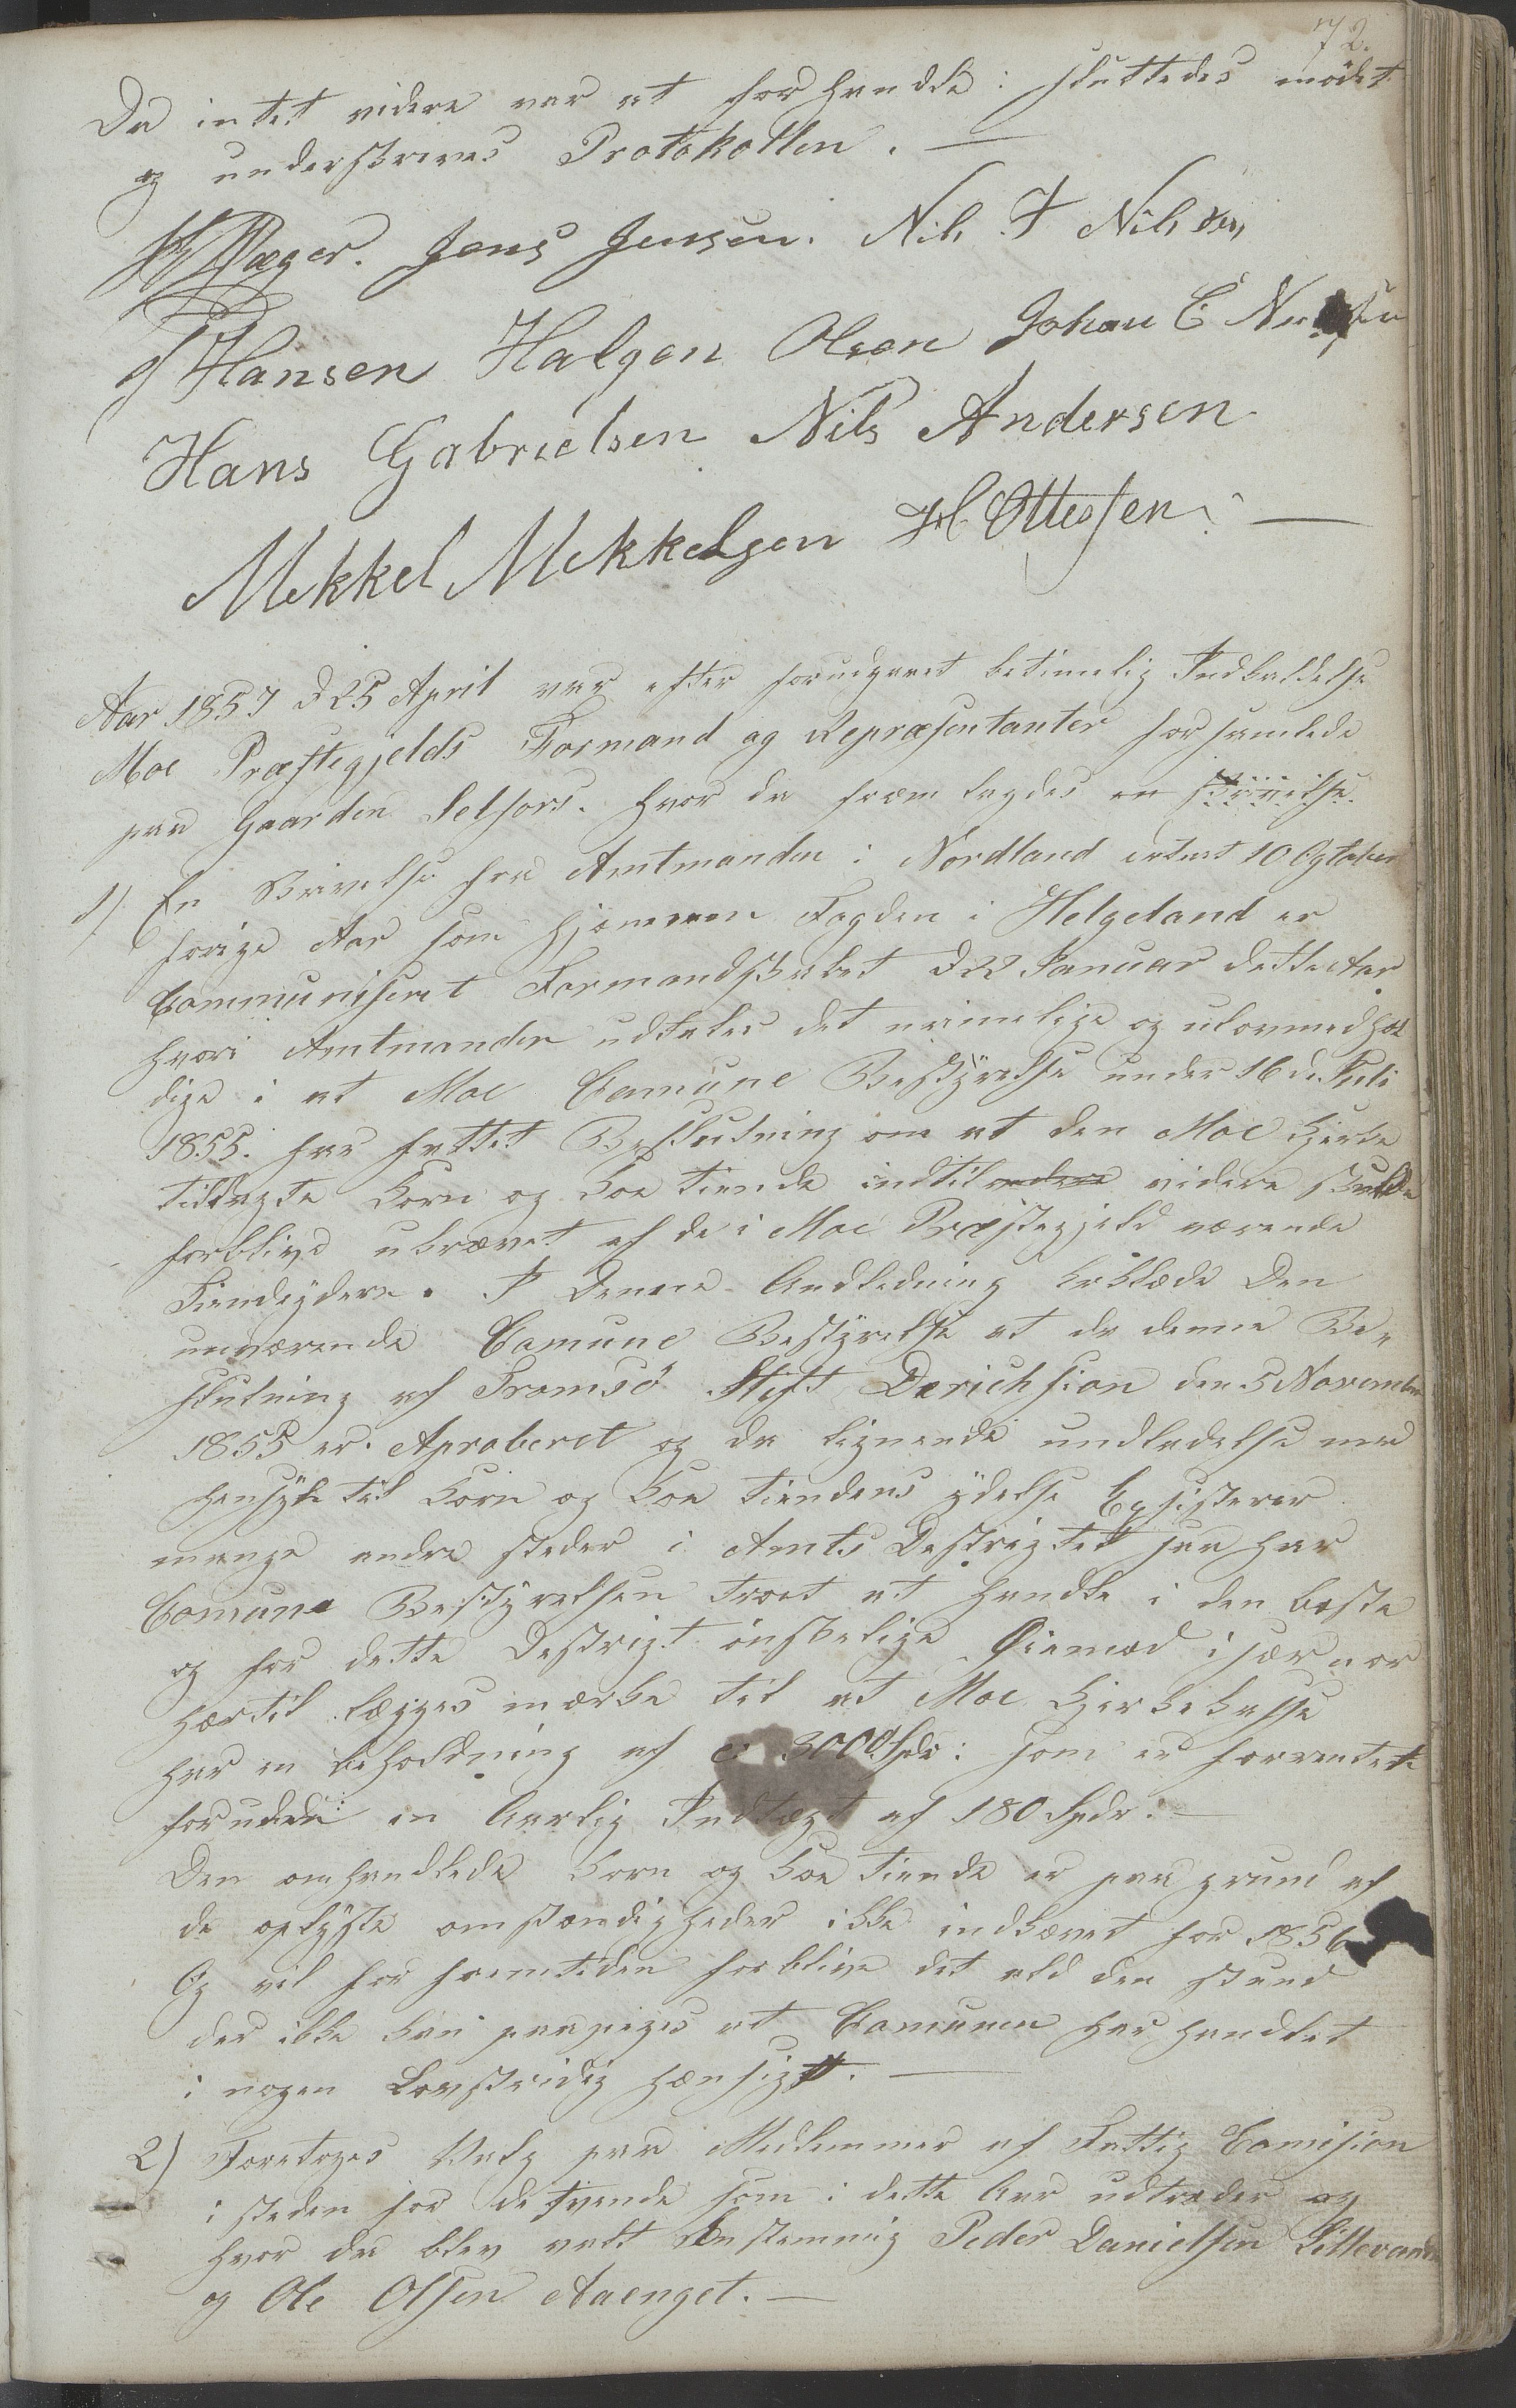 72.
Da intet videre var at forhandle: sluttedes mödet
og underskrives Protokollen. —
Jens Jensen. Nils J Nilsen
J Hansen Halgen Olsen Johan C
Hans Gabrielsen Nils Andersen
Mekkel Mekkelsen H Ottessen. —
Aar 1857 d 25 April var efter forudgaaet betimelig Indkaldelse
Moe Præstegjelds Formand og Repræsentanter forsamlede
paa Gaarden Selfors. hvor da fremlagdes en skrivelse
1) En Skrivelse fra Amtmanden i Nordland datert 10 Ogtober
forige Aar som gjennem Fogden i Helgeland er
Communiseret Formandskabet d 22 Januar dette Aar
hvori Amtmanden udtales det urimelige og ulovmedhol
dige i at Moe Comune Bestyrelse under 16 de Juli
1855. har fattet Beslutning om at den Moe Kirke
tillagte Korn og Koe tiende indtil videre skulde
forblive ukrævet af de i Moe Præstegjeld værende
Tiendeydere. I Denne Andledning erklæde Den
nuværende Comune Bestyrelse at da denne Be„
slutning af Tromsö Stift Derichsion den 5 November
1855 er. Aproberet og da lignende undladelse med
hensyn til Korn og Koe tiendens ydelse Exsisterer
mange andre steder i Amts Destrigtet saa har
Comune Bestyrelsen troet at handle i den beste
og for dette Destrigt önskelige Öiemed især naar
hertil lægges mærke til at Moe Kirkekasse
har en beholdning af c: 3000 Spdr: som er forrentet
foruden en Aarlig Indtægt af 180 Spdr: —
Den omhandlede Korn og Koe tiende er paa grund af
de oplyste omstændigheder ikke indkrævet for 1856
Og vil for fremtiden forblive det ald den stund
der ikke kan paapeges at Comunen har handlet
i nogen Lovstridig hensigt. —
2) Foretoges Valg paa Medlemmer af Fattig Comision
i steden for de tvende som i dette Aar udtræder og
hvor da blev valt Enstemmig Peder Danielsen Lillevand
og Ole Olsen Aaenget. —